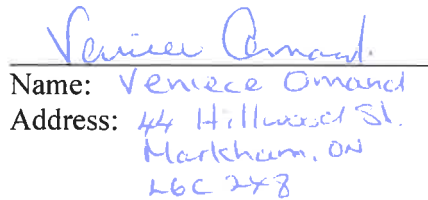 Veniece Omand
Name: Veniece Omand
Address: 44 Hillwood St.
Markham, ON
L6C 2X8